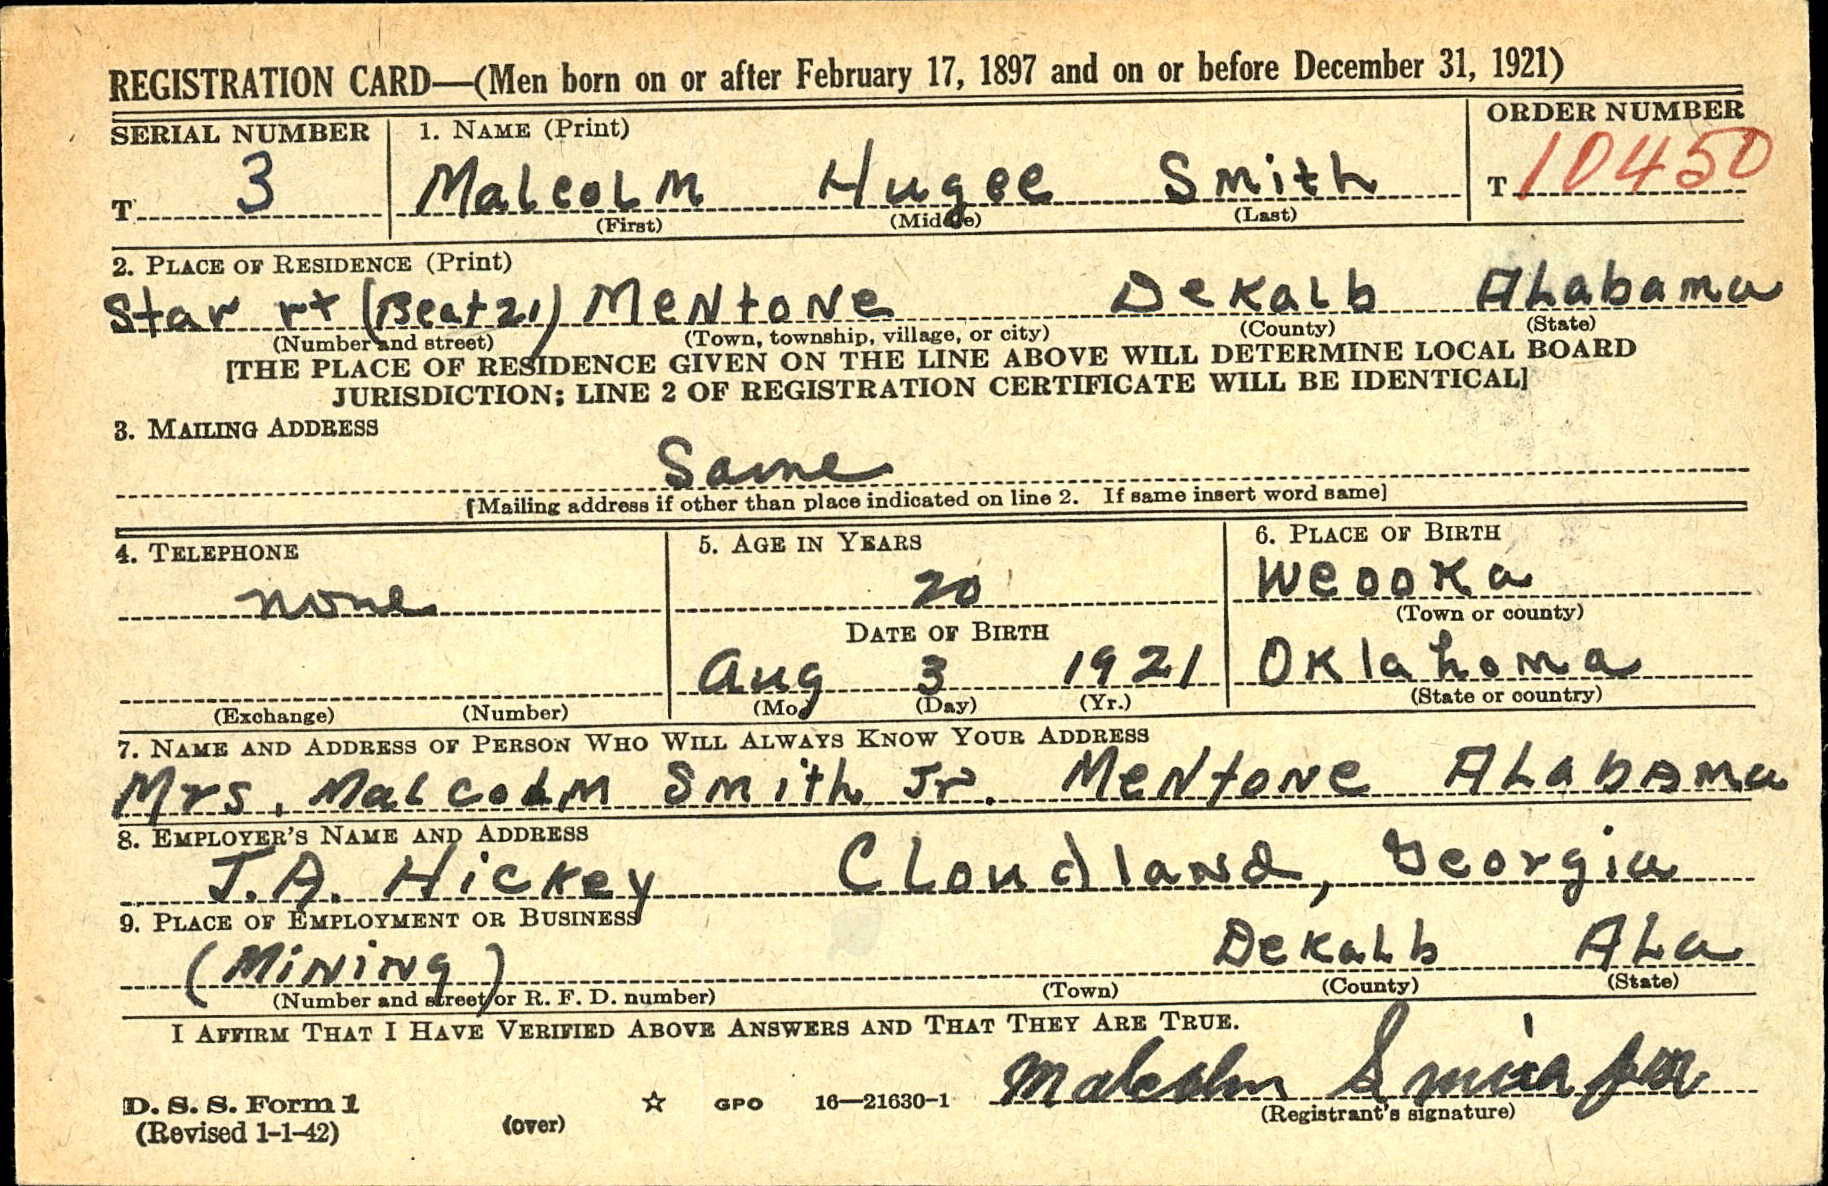 REGISTRATION CARD—(Men born on or after February 17, 1897 and on or before December 31, 1921)
SERIAL NUMBER 1. NAME (Print) ORDER NUMBER
T 3 Malcolm Hugee Smith T 10450
(First) (Middle) (Last)
2. PLACE OF RESIDENCE (Print)
Star rt (Beat 21) Mentone DeKalb Alabama
(Number and street) (Town, township, village, or city) (County) (State)
[THE PLACE OF RESIDENCE GIVEN ON THE LINE ABOVE WILL DETERMINE LOCAL BOARD
JURISDICTION; LINE 2 OF REGISTRATION CERTIFICATE WILL BE IDENTICAL]
3. MAILING ADDRESS
Same
[Mailing address if other than place indicated on line 2. If same insert word same]
4. TELEPHONE 5. AGE IN YEARS 6. PLACE OF BIRTH
none 20 Weooka
(Town or county)
DATE OF BIRTH
Aug 3 1921 Oklahoma
(Exchange) (Number) (Mo.) (Day) (Yr.) (State or country)
7. NAME AND ADDRESS OF PERSON WHO WILL ALWAYS KNOW YOUR ADDRESS
Mrs. Malcolm Smith Jr. Mentone Alabama
8. EMPLOYER'S NAME AND ADDRESS
J.A. Hickey Cloudland, Georgia
9. PLACE OF EMPLOYMENT OR BUSINESS
(Mining) DeKalb Ala
(Number and street or R. F. D. number) (Town) (County) (State)
I AFFIRM THAT I HAVE VERIFIED ABOVE ANSWERS AND THAT THEY ARE TRUE.
Malcolm Smith Jr
D. S. S. Form 1 (over) ☆ GPO 16—21630-1 (Registrant's signature)
(Revised 1-1-42)